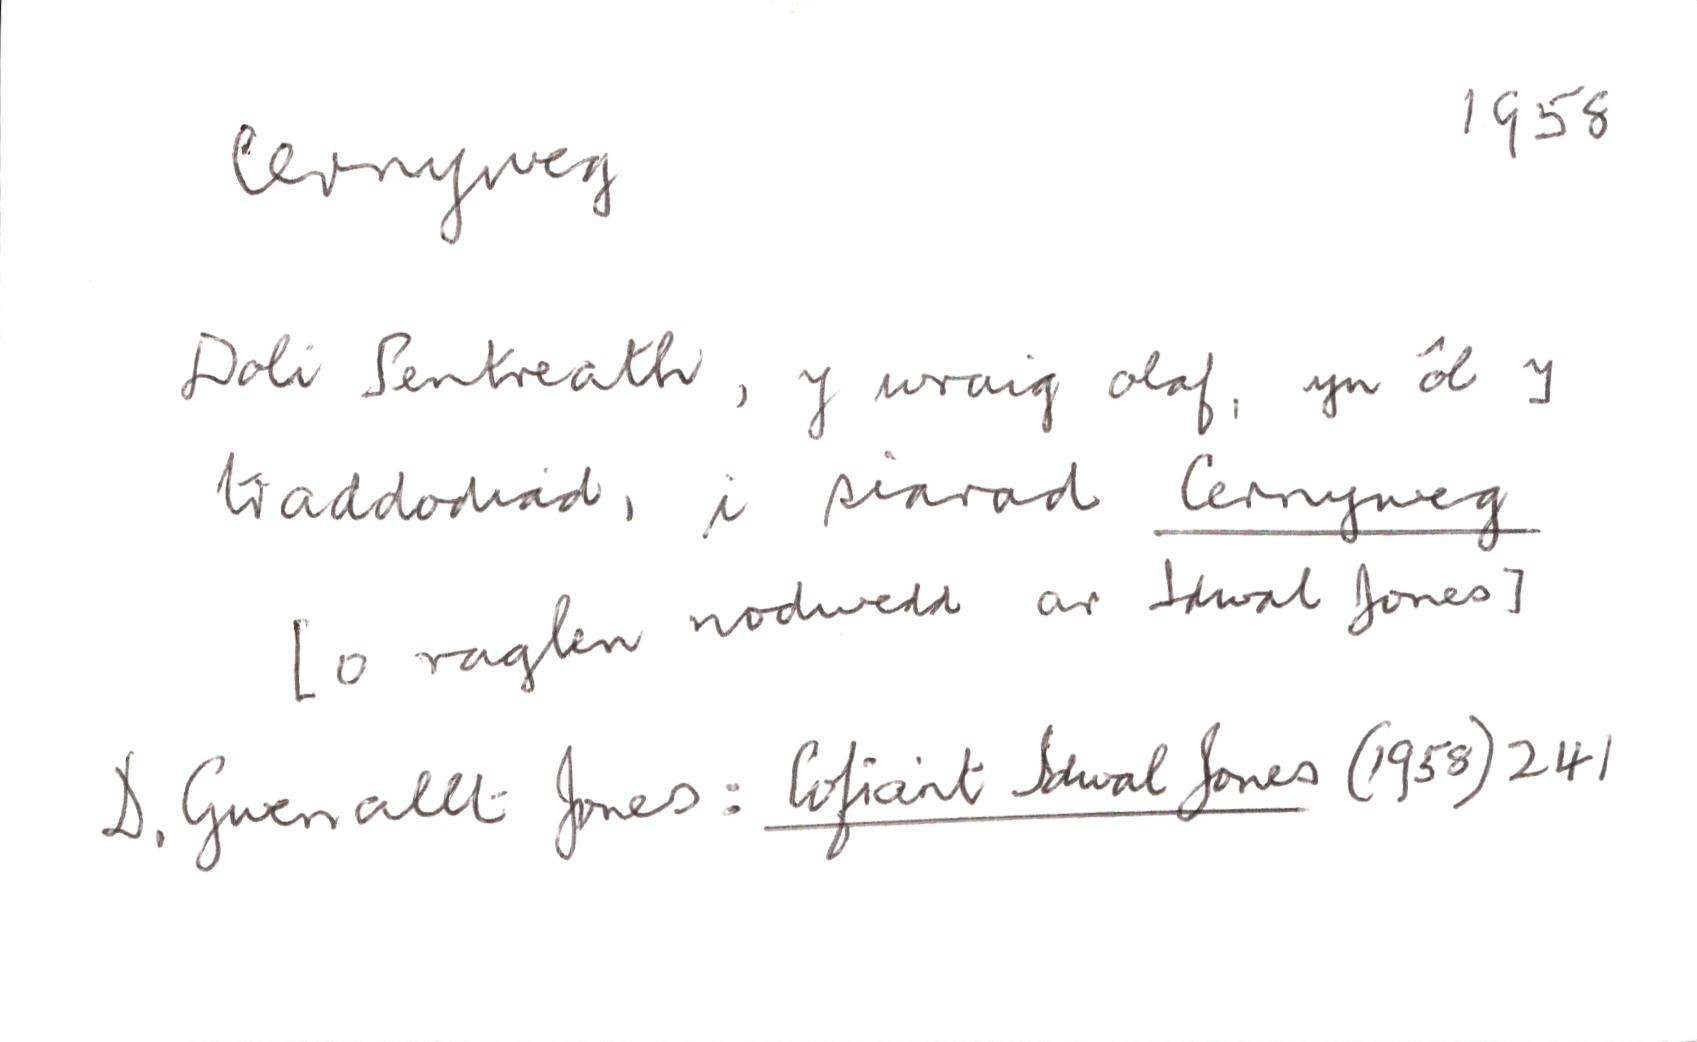 1958
Cernyweg
Doli Pentreath, y wraig olaf, yn ôl y
traddodiad, i siarad Cernyweg
[o raglen nodwedd ar Idwal Jones]
D. Gwenallt Jones: Cofiant Idwal Jones (1958) 241